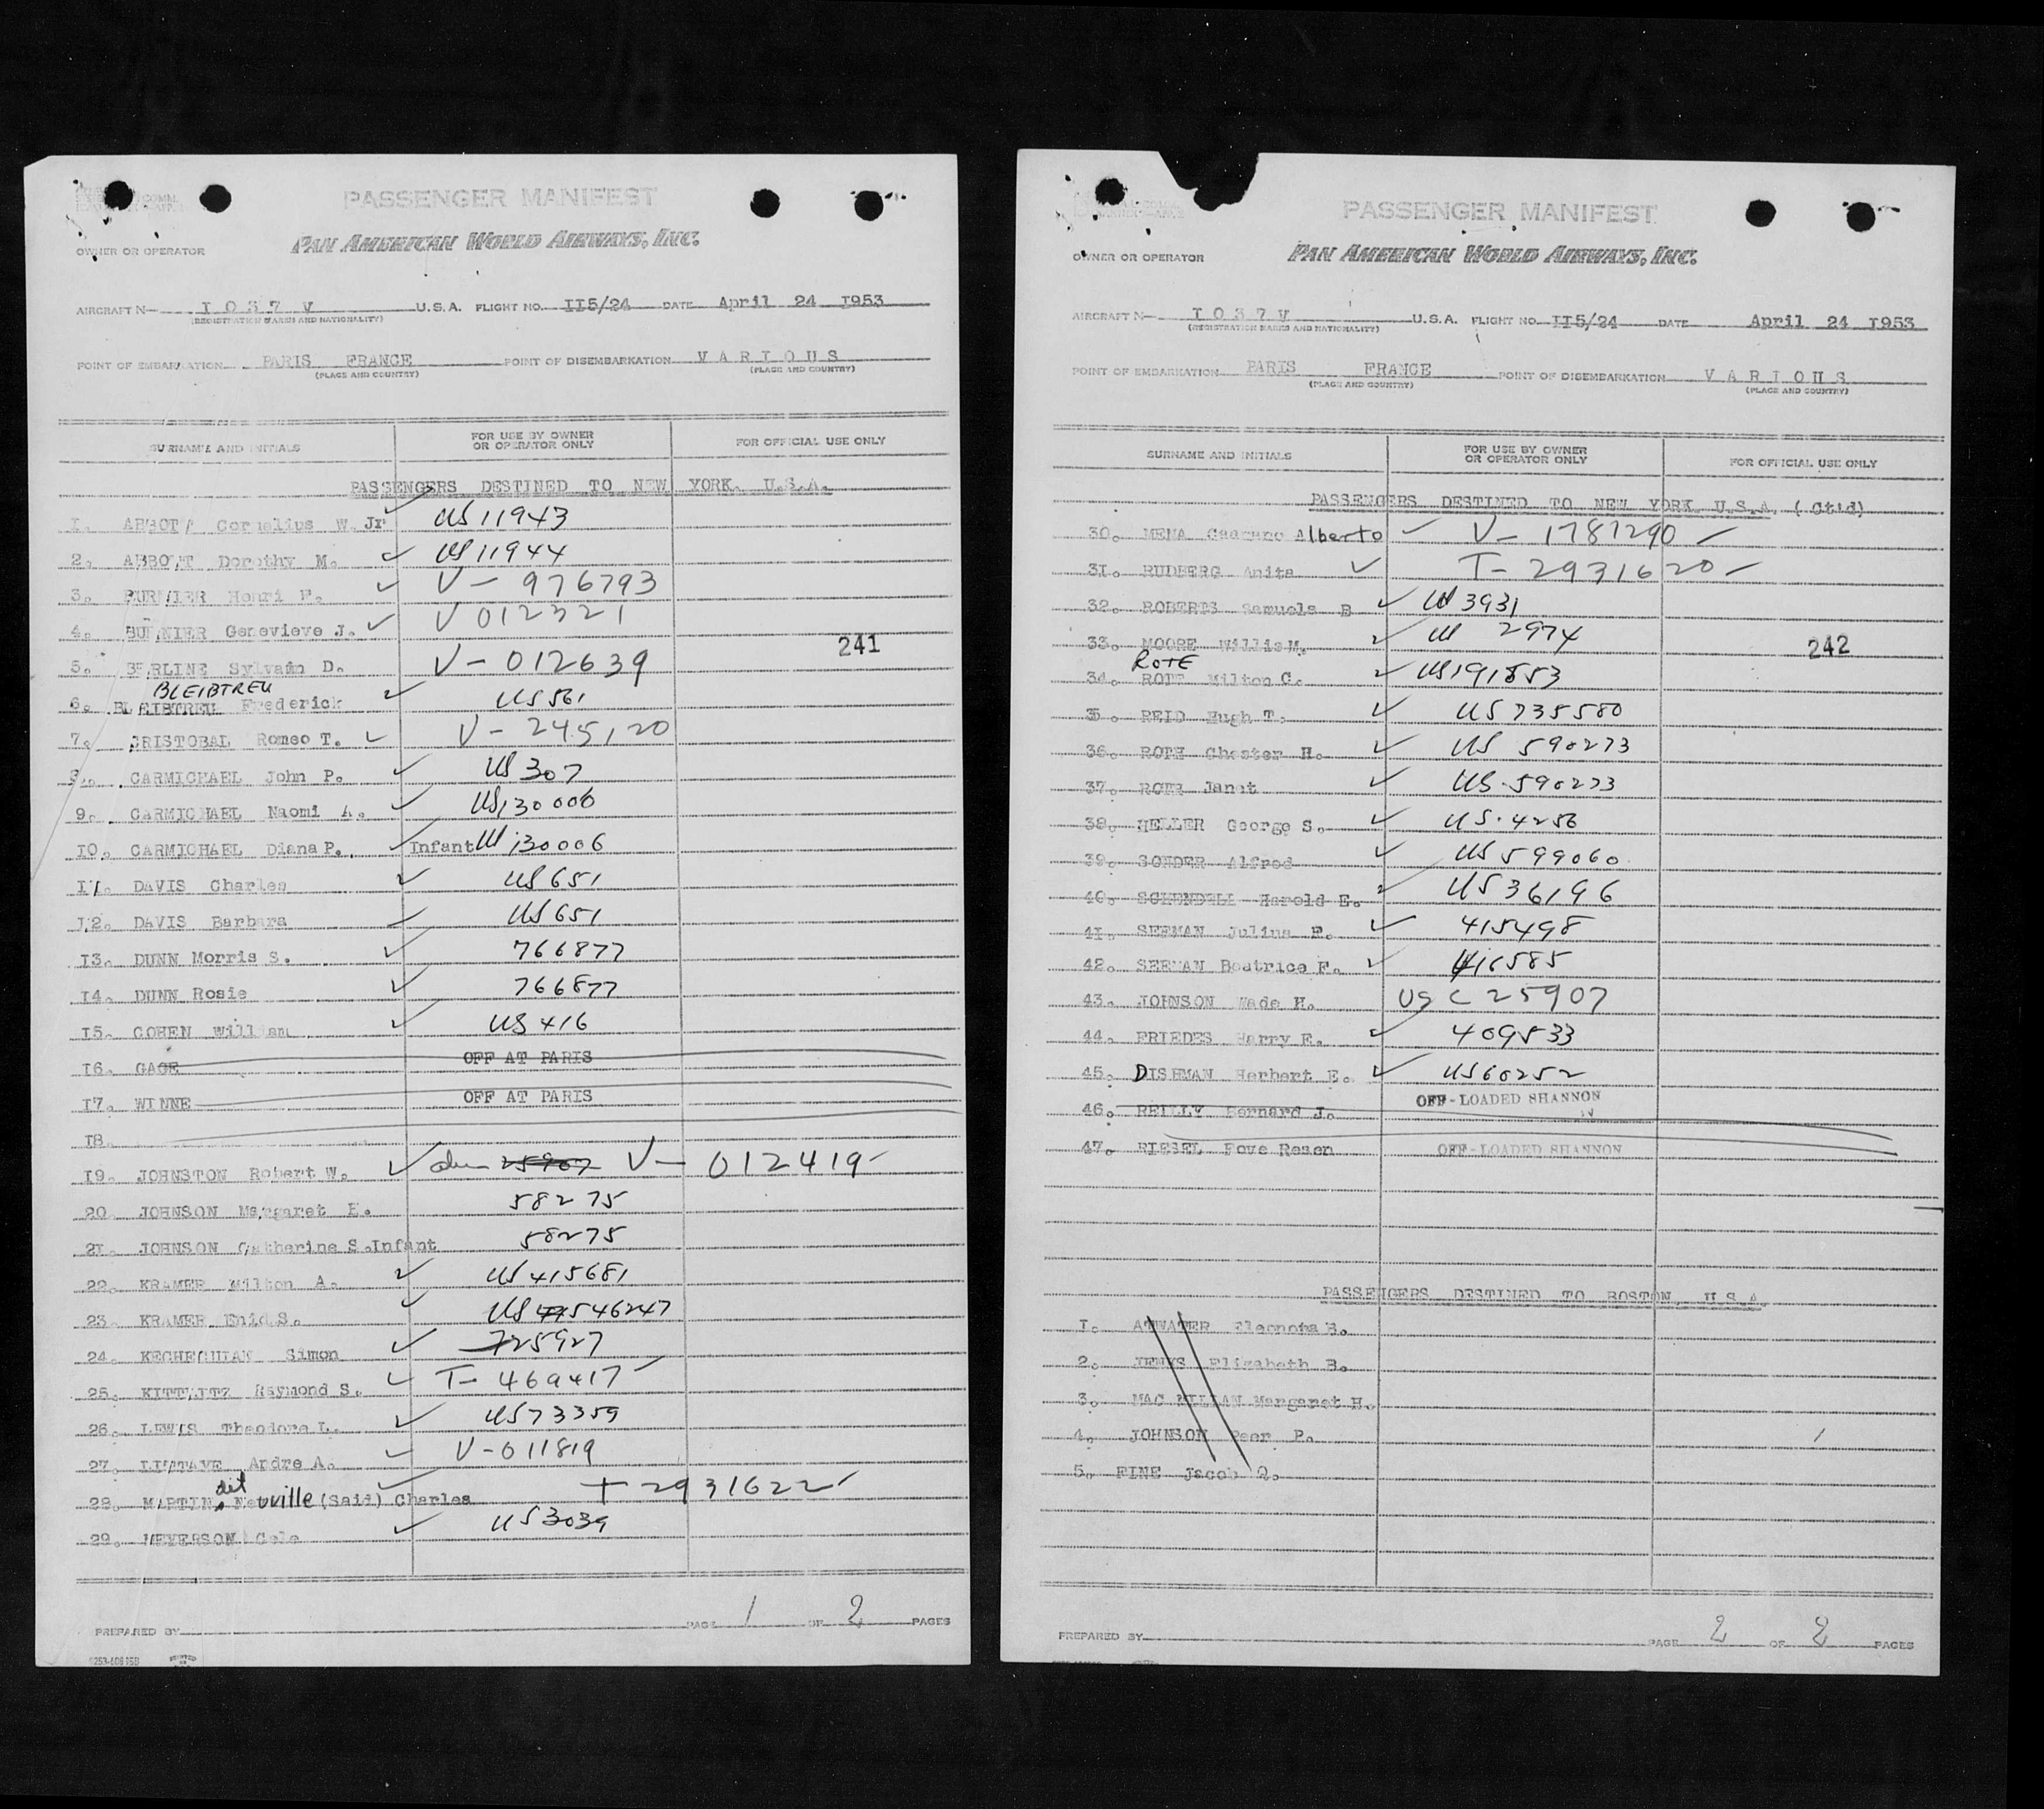 PASSENGER MANIFEST
OWNER OR OPERATOR PAN AMERICAN WORLD AIRWAYS, INC.
AIRCRAFT N— I 0 3 7 V U.S.A. FLIGHT NO. II5/24 DATE April 24 I953
(REGISTRATION MARKS AND NATIONALITY)
POINT OF EMBARKATION PARIS FRANCE POINT OF DISEMBARKATION V A R I O U S
(PLACE AND COUNTRY) (PLACE AND COUNTRY)
SURNAME AND INITIALS FOR USE BY OWNER OR OPERATOR ONLY FOR OFFICIAL USE ONLY
PASSENGERS DESTINED TO NEW YORK. U.S.A.
I. ABBOTT Cornelius W. Jr US 11943
2. ABBOTT Dorothy M. US 11944
3. BURNIER Henri F. V - 976793
4. BURNIER Genevieve J. V 012321
241
5. BERLINE Sylvain D. V - 012639
BLEIBTREU
6. BLEIBTREU Frederick US 561
7. CRISTOBAL Romeo T. V - 245120
8. CARMICHAEL John P. US 307
9. CARMICHAEL Naomi A. US 130006
I0. CARMICHAEL Diana P. Infant US 130006
II. DAVIS Charles US 651
I2. DAVIS Barbara US 651
I3. DUNN Morris S. 766877
I4. DUNN Rosie 766877
I5. COHEN William US 416
I6. GAGE OFF AT PARIS
I7. WINNE OFF AT PARIS
I8.
I9. JOHNSTON Robert W. 25907 V - 012419
20. JOHNSON Margaret E. 58275
2I. JOHNSON Catherine S. Infant 58275
22. KRAMER Milton A. US 415681
23. KRAMER Enid S. US 546247
24. Simon 725927
25. Raymond S. T- 469417
26. LEWIS Theodore L. US 73359
27. Andre A. V - 011819
dit
28. MARTIN Neuville (Said) Charles T 2931622
29. MEYERSON Cele US 3039
PREPARED BY PAGE 1 OF 2 PAGES
PASSENGER MANIFEST
OWNER OR OPERATOR PAN AMERICAN WORLD AIRWAYS, INC.
AIRCRAFT N— I 0 3 7 V U.S.A. FLIGHT NO. II5/24 DATE April 24 I953
(REGISTRATION MARKS AND NATIONALITY)
POINT OF EMBARKATION PARIS FRANCE POINT OF DISEMBARKATION V A R I O U S
(PLACE AND COUNTRY) (PLACE AND COUNTRY)
SURNAME AND INITIALS FOR USE BY OWNER OR OPERATOR ONLY FOR OFFICIAL USE ONLY
PASSENGERS DESTINED TO NEW YORK U.S.A. (Ct'd)
30. MENA Alberto V - 1781290
3I. RUDBERG Anita T- 2931620
32. ROBERTS Samuels B US 3931
33. MOORE Willis M. US 2974
242
ROTE
34. ROTE Milton C. US 191853
35. REID Hugh T. US 735580
36. ROTH Chester H. US 590273
37. ROTH Janet US 590273
38. HELLER George S. US 4256
39. SONDER Alfred US 599060
40. SCHENDELL Harold E. US 36196
4I. SEEMAN Julius F. 415498
42. SEEMAN Beatrice F. 416585
43. JOHNSON Wade H. US C 25907
44. FRIEDES Harry E. 409533
45. DISHMAN Herbert E. US 60252
46. REILLY Bernard J. OFF-LOADED SHANNON
47. RIESEL OFF-LOADED SHANNON
PASSENGERS DESTINED TO BOSTON, U.S.A.
I. ATWATER Eleonora B.
2. JENKS Elizabeth B.
3. MAC MILLAN Margaret H.
4. JOHNSON Peer P.
5. FINE Jacob
PREPARED BY PAGE 2 OF 2 PAGES